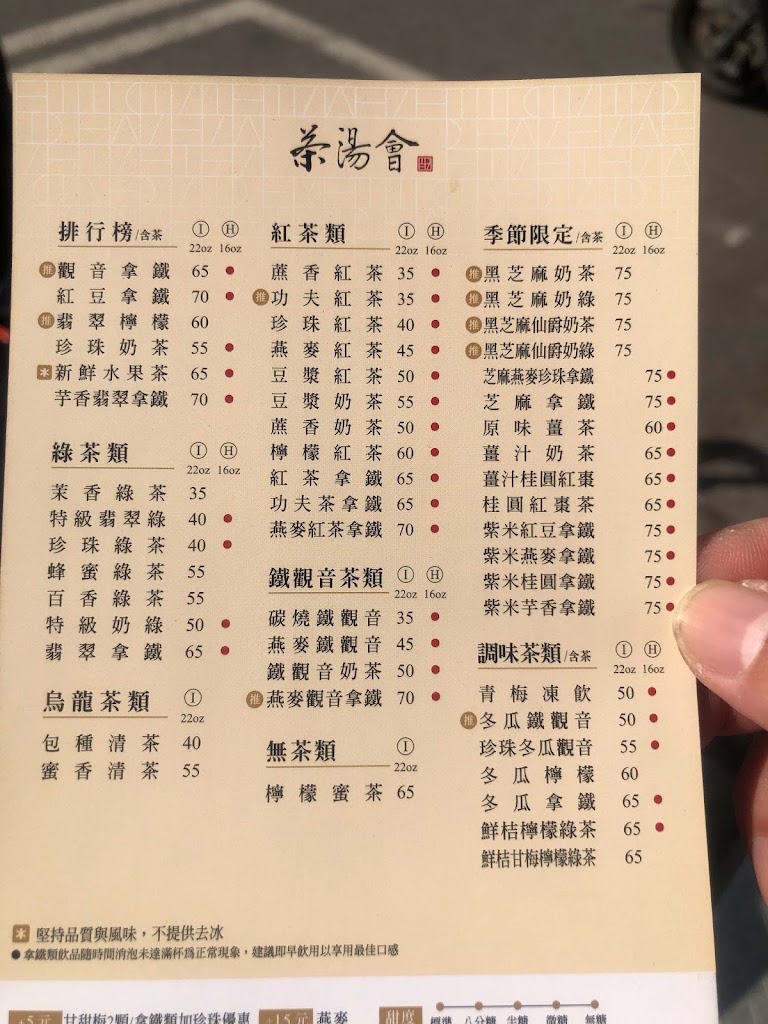 茶湯會
排行榜/含茶 Ⓘ 22oz Ⓗ 16oz
推 觀音拿鐵 65 ●
紅豆拿鐵 70 ●
推 翡翠檸檬 60
珍珠奶茶 55 ●
＊ 新鮮水果茶 65 ●
芋香翡翠拿鐵 70 ●
綠茶類 Ⓘ 22oz Ⓗ 16oz
茉香綠茶 35
特級翡翠綠 40 ●
珍珠綠茶 40 ●
蜂蜜綠茶 55
百香綠茶 55
特級奶綠 50 ●
翡翠拿鐵 65 ●
烏龍茶類 Ⓘ 22oz
包種清茶 40
蜜香清茶 55
紅茶類 Ⓘ 22oz Ⓗ 16oz
蔗香紅茶 35 ●
推 功夫紅茶 35 ●
珍珠紅茶 40 ●
燕麥紅茶 45 ●
豆漿紅茶 50 ●
豆漿奶茶 55 ●
蔗香奶茶 50 ●
檸檬紅茶 60 ●
紅茶拿鐵 65 ●
功夫茶拿鐵 65 ●
燕麥紅茶拿鐵 70 ●
鐵觀音茶類 Ⓘ 22oz Ⓗ 16oz
碳燒鐵觀音 35 ●
燕麥鐵觀音 45 ●
鐵觀音奶茶 50 ●
推 燕麥觀音拿鐵 70 ●
無茶類 Ⓘ 22oz
檸檬蜜茶 65
季節限定/含茶 Ⓘ 22oz Ⓗ 16oz
推 黑芝麻奶茶 75
推 黑芝麻奶綠 75
推 黑芝麻仙爵奶茶 75
推 黑芝麻仙爵奶綠 75
芝麻燕麥珍珠拿鐵 75 ●
芝麻拿鐵 75 ●
原味薑茶 60 ●
薑汁奶茶 65 ●
薑汁桂圓紅棗 65 ●
桂圓紅棗茶 65 ●
紫米紅豆拿鐵 75 ●
紫米燕麥拿鐵 75 ●
紫米桂圓拿鐵 75 ●
紫米芋香拿鐵 75 ●
調味茶類/含茶 Ⓘ 22oz Ⓗ 16oz
青梅凍飲 50 ●
推 冬瓜鐵觀音 50 ●
珍珠冬瓜觀音 55 ●
冬瓜檸檬 60
冬瓜拿鐵 65 ●
鮮桔檸檬綠茶 65 ●
鮮桔甘梅檸檬綠茶 65
＊ 堅持品質與風味，不提供去冰
● 拿鐵類飲品隨時間消泡未達滿杯為正常現象，建議即早飲用以享用最佳口感
+5元 甘甜梅2顆/拿鐵類加珍珠優惠 +15元 燕麥 甜度 標準 八分糖 半糖 微糖 無糖